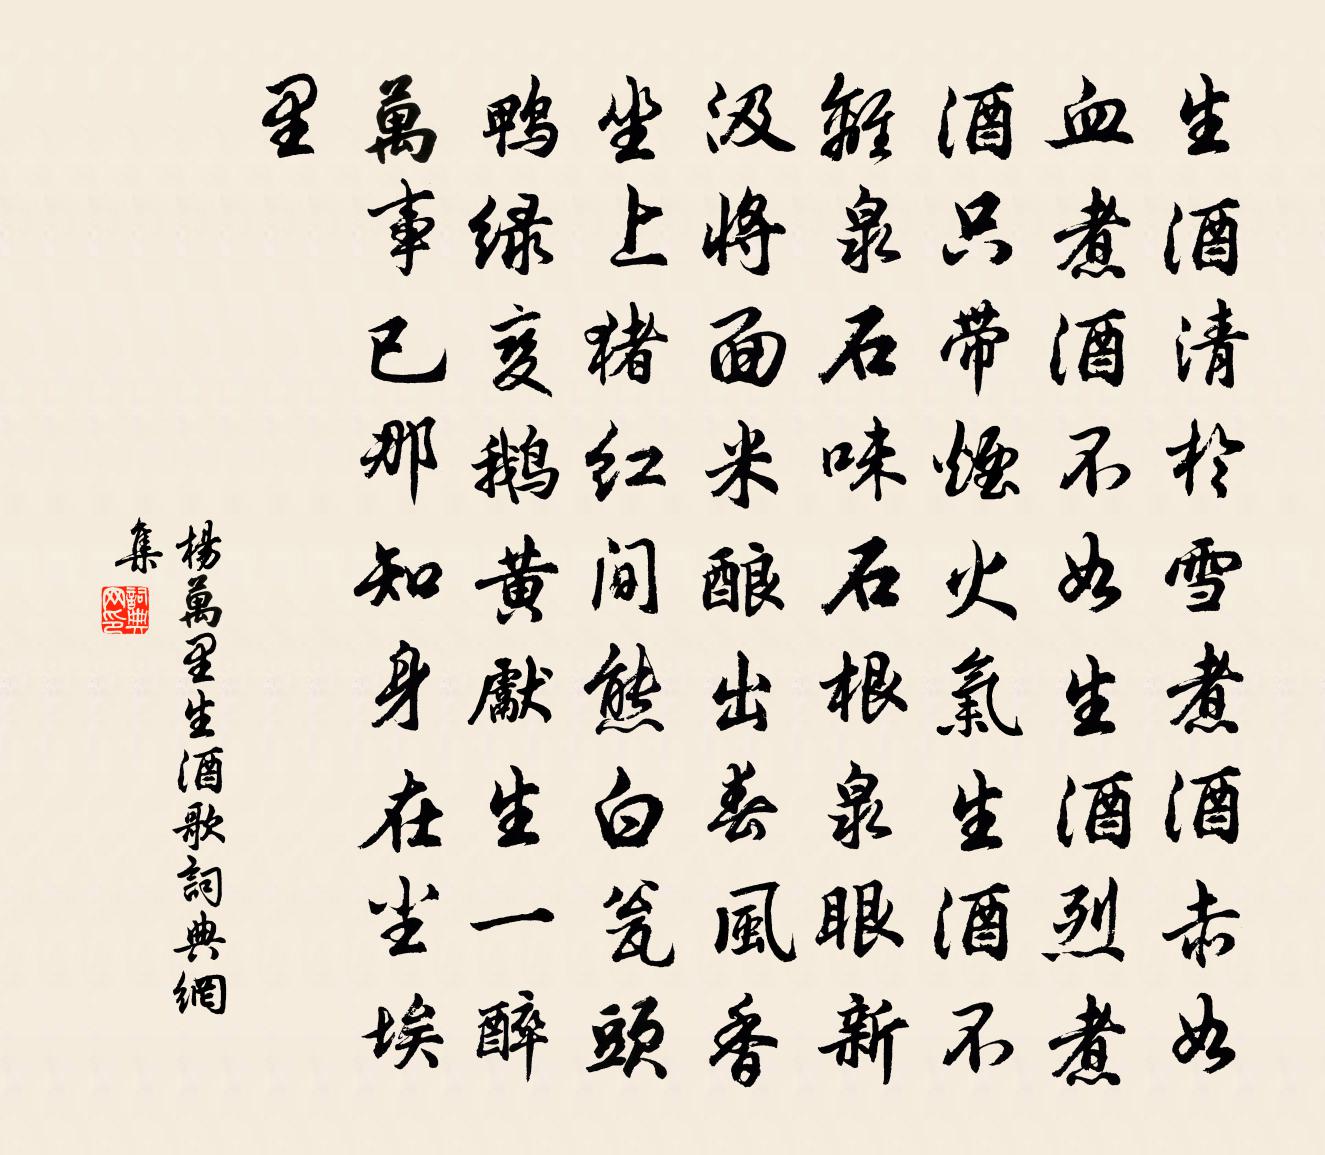 生酒清於雪煮酒赤如
血煮酒不如生酒烈煮
酒只带煙火氣生酒不
離泉石味石根泉眼新
汲將面米酿出春風香
坐上猪红间熊白瓮頭
鸭绿变鹅黄獻生一醉
萬事已那知身在尘埃
里
楊萬里生酒歌詞典網
集
詞典网印